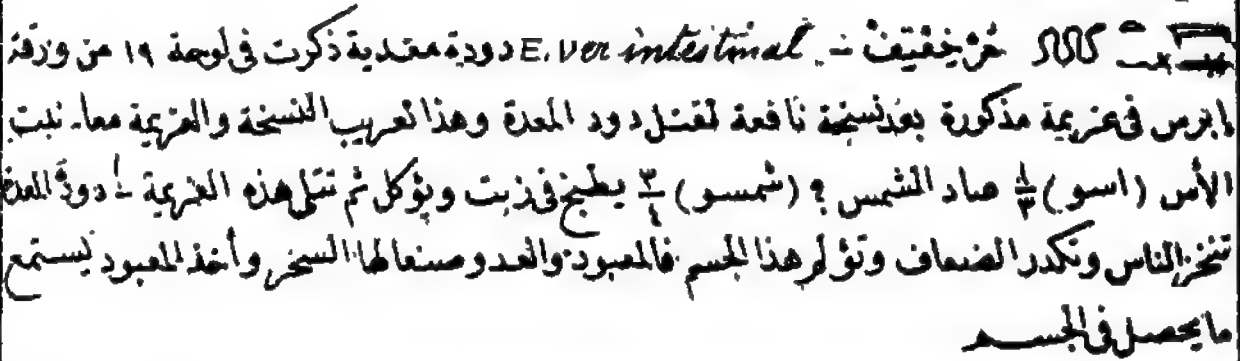 خرخفتيفْ ـ E. ver intestinal دودة معدية ذكرت فى لوحة ١٩ من ورقة
إبرس فى عزيمة مذكورة بعد نسخة نافعة لقتل دود المعدة وهذا تعريب النسخة والعزيمة معا. نبت
الأس (اسو) ١/٣ صاد الشمس ؟ (شمسو) ٣/٤ يطبخ فى زيت ويؤكل ثم تتلى هذه العزيمة دودة المعدة
تنخز الناس وتكدر الضعاف وتؤلم هذا الجسم فالمعبود والعدو صنعا لها السحر وأخذ المعبود يستمع
ما يحصل فى الجسم